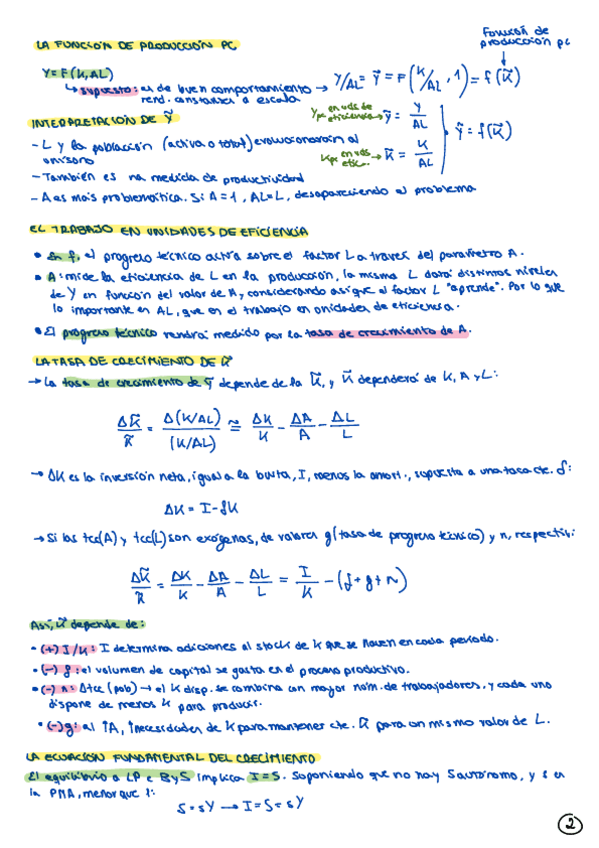 Función de
producción pc
LA FUNCIÓN DE PRODUCCIÓN PC
Y = F(K, AL)
↳ supuesto: es de buen comportamiento → Y/AL = Ỹ = F(K/AL, 1) = f(K̃)
rend. constantes a escala
INTERPRETACIÓN DE Ỹ
Ypc en uds de eficiencia → ỹ = Y/AL
Kpc en uds efic. → K̃ = K/AL
Ỹ = f(K̃)
- L y la población (activa o total) evolucionarán al
unísono
- También es una medida de productividad
- A es más problemática. Si A = 1, AL = L, desapareciendo el problema
EL TRABAJO EN UNIDADES DE EFICIENCIA
• En f, el progreso técnico actúa sobre el factor L a través del parámetro A.
• A: mide la eficiencia de L en la producción, la misma L dará distintos niveles
de Y en función del valor de A, considerando así que el factor L "aprende". Por lo que
lo importante en AL, que en el trabajo en unidades de eficiencia.
• El progreso técnico vendrá medido por la tasa de crecimiento de A.
LA TASA DE CRECIMIENTO DE K̃
→ La tasa de crecimiento de Ỹ depende de la K̃, y K̃ dependerá de K, A y L:
ΔK̃/K̃ = Δ(K/AL)/(K/AL) ≅ ΔK/K - ΔA/A - ΔL/L
→ ΔK es la inversión neta, igual a la bruta, I, menos la amort., supuesta a una tasa cte. δ:
ΔK = I - δK
→ Si las tcc(A) y tcc(L) son exógenas, de valores g (tasa de progreso técnico) y n, respectiv.:
ΔK̃/K̃ = ΔK/K - ΔA/A - ΔL/L = I/K - (δ + g + n)
Así, K̃ depende de:
• (+) I/K: I determina adiciones al stock de K que se hacen en cada periodo.
• (-) δ: el volumen de capital se gasta en el proceso productivo.
• (-) n: Δtcc (pob) → el K disp. se combina con mayor núm. de trabajadores, y cada uno
dispone de menos K para producir.
• (-) g: al ↑A, ↑necesidades de K para mantener cte. K̃ para un mismo valor de L.
LA ECUACIÓN FUNDAMENTAL DEL CRECIMIENTO
El equilibrio a LP e ByS implica I = S. Suponiendo que no hay S autónomo, y s es
la PMA, menor que 1:
S = sY → I = S = sY
2